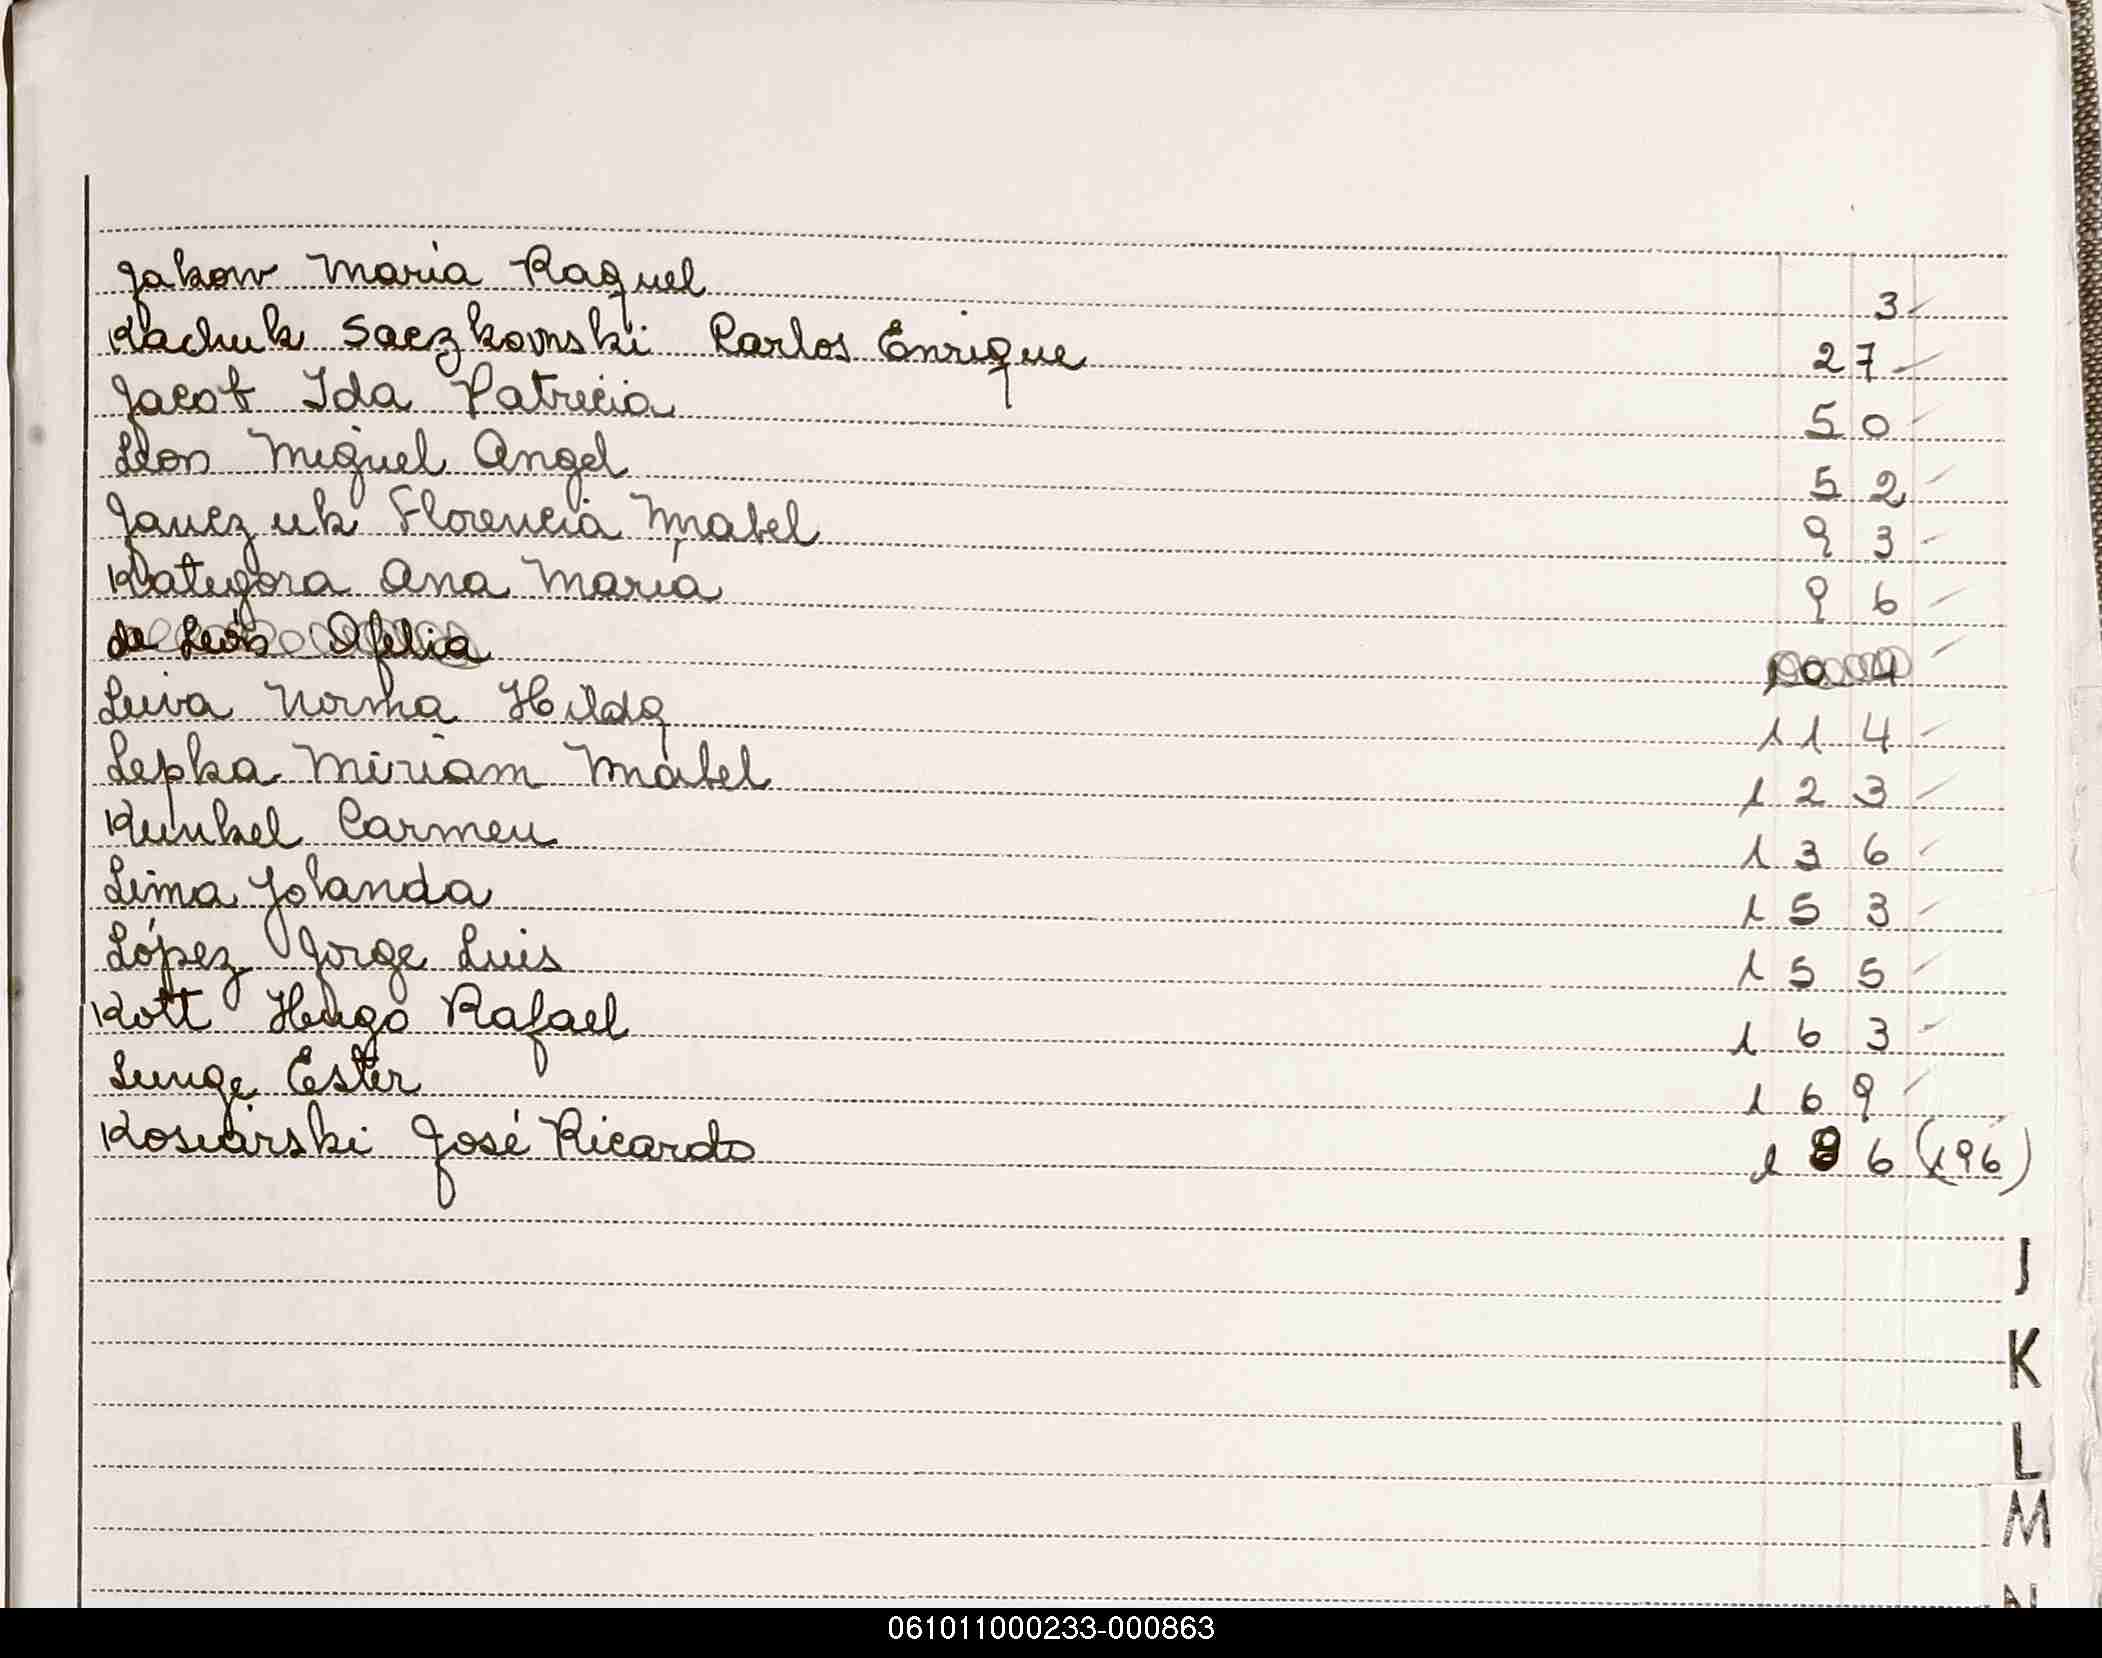 Jakow María Raquel 3
Kachuk Saczkowski Carlos Enrique 27
Jacob Ida Patricia 50
León Miguel Angel 52
Jauczuk Florencia Mabel 93
Kategora Ana María 96
de León Ofelia 104
Leiva Norma Hilda 114
Lepka Miriam Mabel 123
Kunkel Carmen 136
Lima Jolanda 153
López Jorge Luis 155
Kott Hugo Rafael 163
Lunge Ester 169
Kosiarski José Ricardo 186 (196)
J
K
L
M
N
061011000233-000863